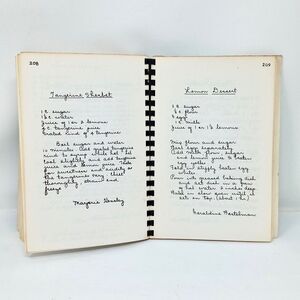 208
Tangerine Sherbet
1 c. sugar
1 c. water
Juice of 1 or 2 lemons
2 c. tangerine juice
Grated rind of 2 tangerine
Boil sugar and water
10 minutes. Add grated tangerine
rind to syrup while hot. Let
cool slightly, and add tangerine
juice and lemon juice. Taste
for sweetness and acidity as
the tangerines vary. Chill
thoroughly, strain and
freeze.
Marjorie
209
Lemon Dessert
1 c. sugar
flour
eggs
1 c. milk
Juice of 1 or 1½ lemons
Mix flour and sugar
Beat eggs separately
Add milk, flour, sugar
and lemon juice to beaten
egg yolks
Fold in slightly beaten egg
whites
Pour into greased baking dish
and set dish in a pan
of hot water 2 inches deep
Bake in slow oven until it
sets on top. (about 1 hr.)
Geraldine